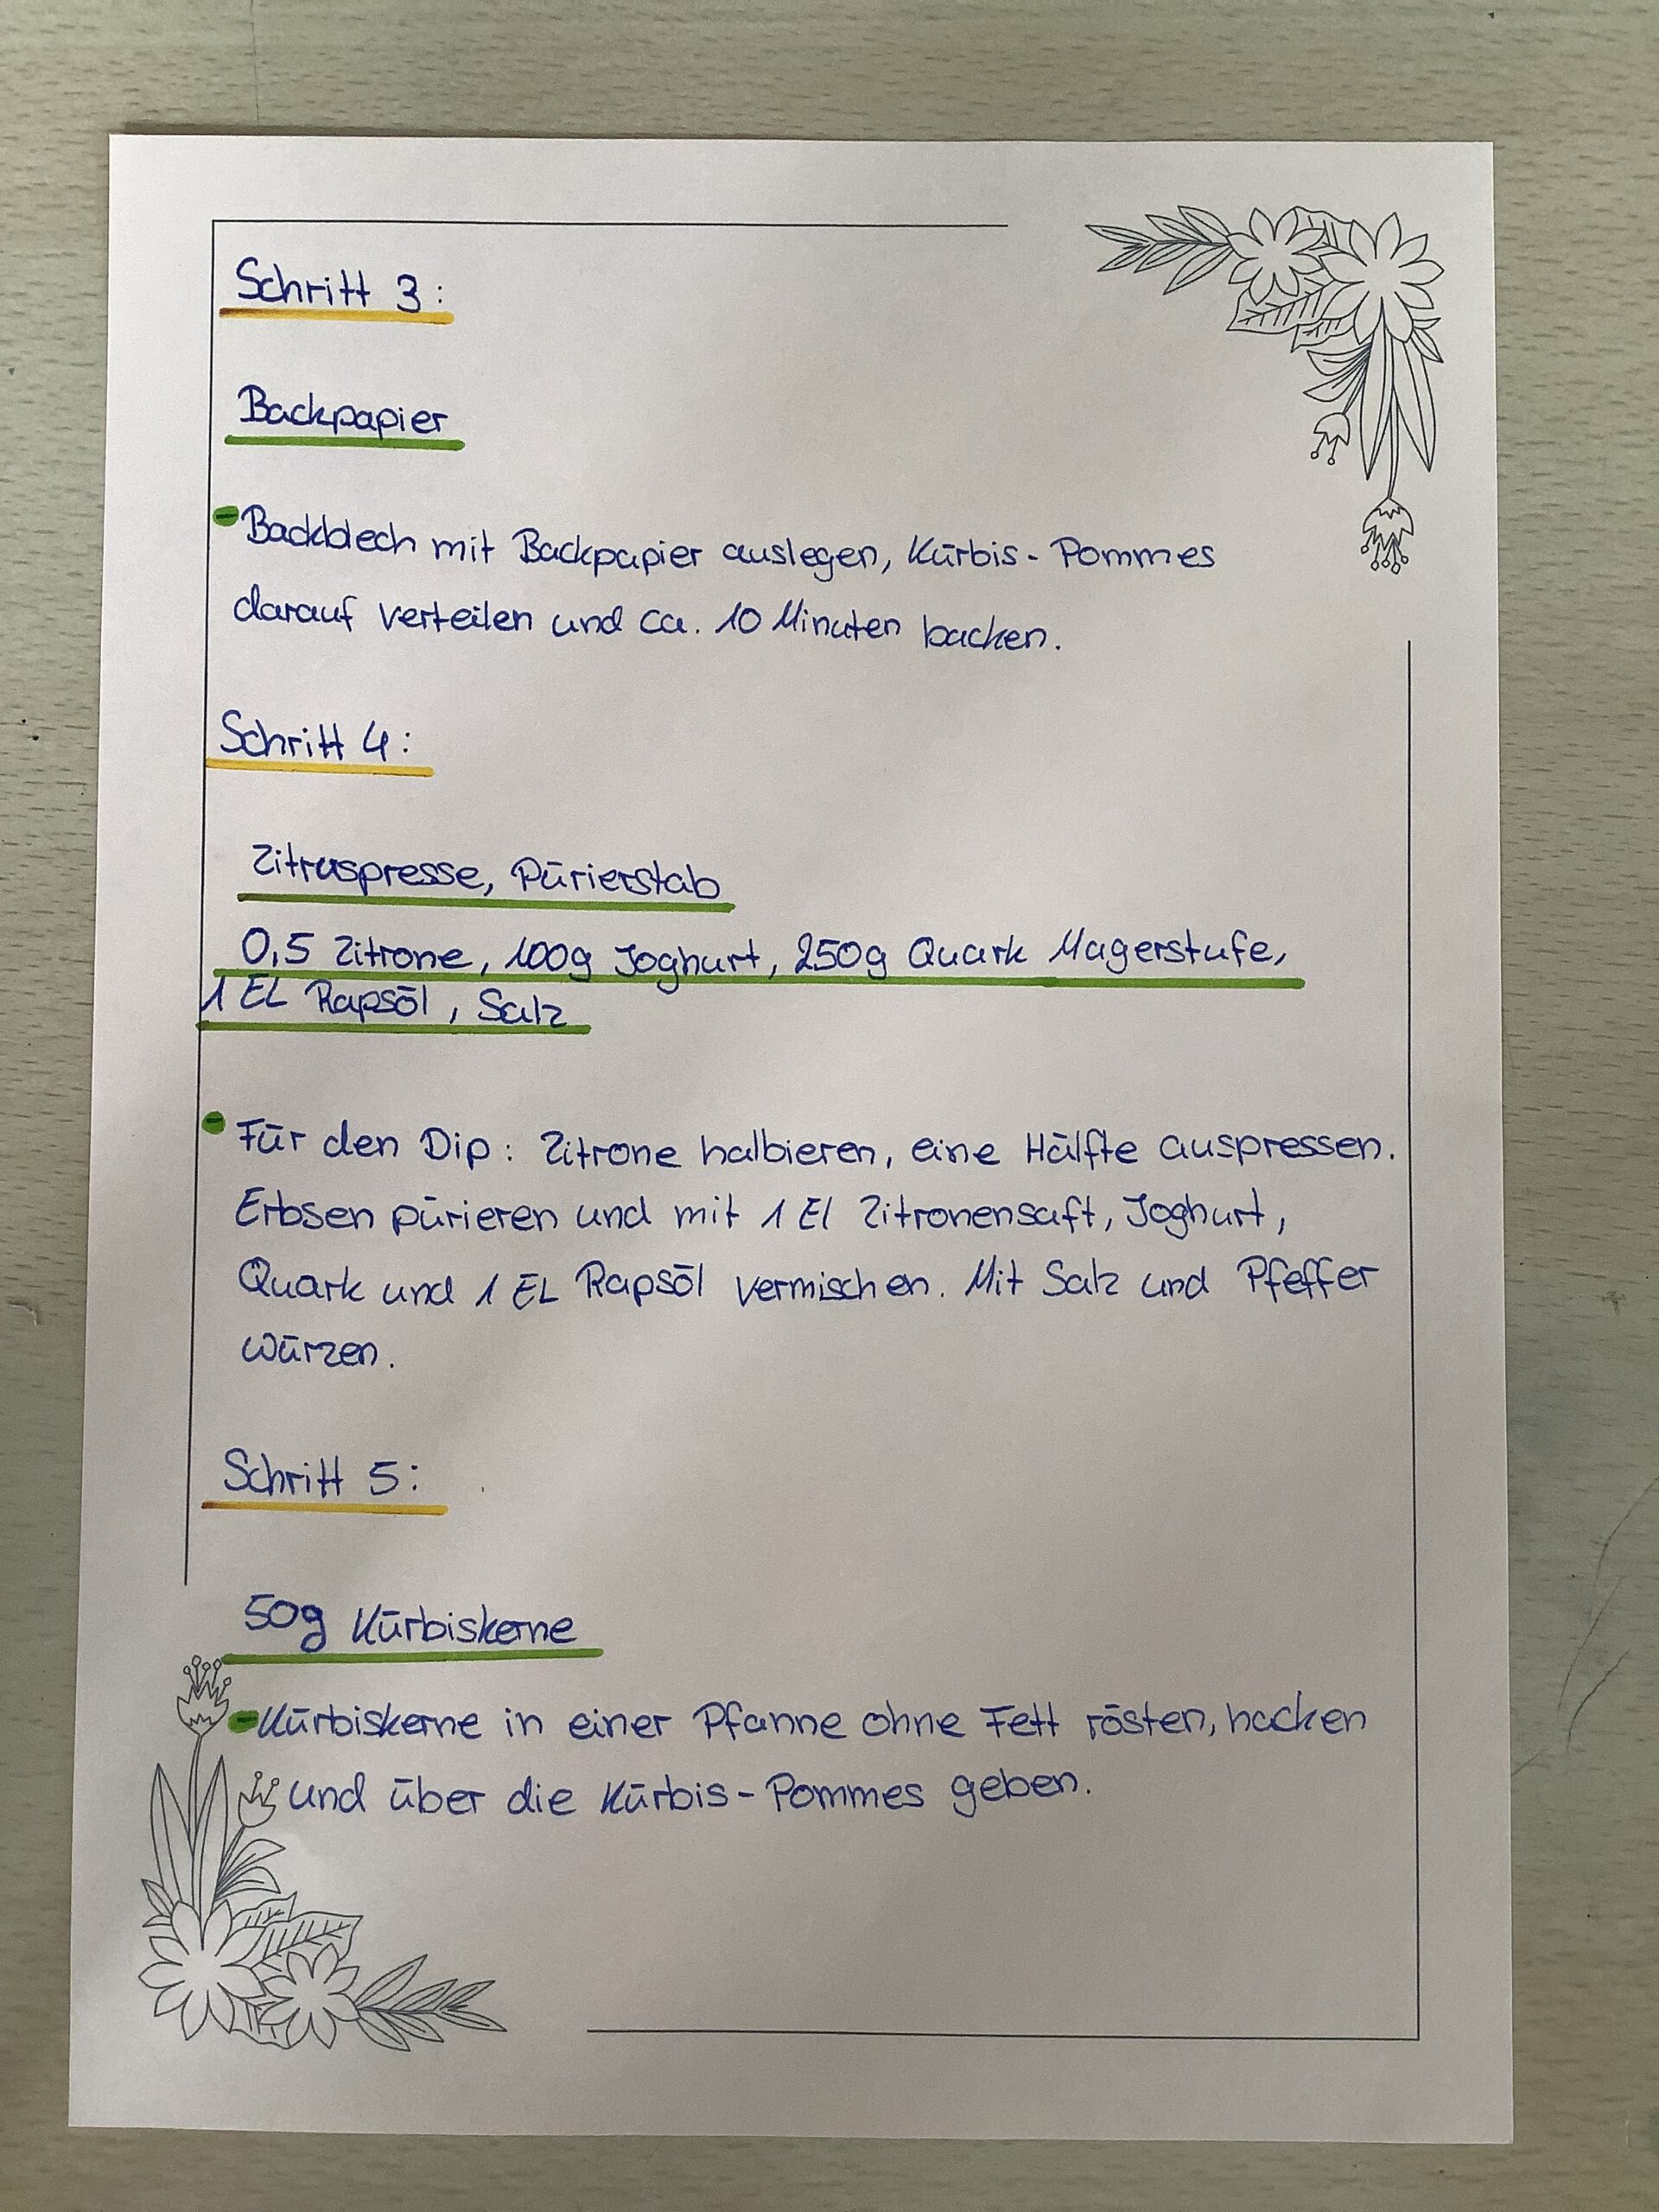 Schritt 3:
Backpapier
- Backblech mit Backpapier auslegen, Kürbis-Pommes
darauf verteilen und ca. 10 Minuten backen.
Schritt 4:
Zitruspresse, Pürierstab
0,5 Zitrone, 100g Joghurt, 250g Quark Magerstufe,
1 EL Rapsöl, Salz
- Für den Dip: Zitrone halbieren, eine Hälfte auspressen.
Erbsen pürieren und mit 1 El Zitronensaft, Joghurt,
Quark und 1 EL Rapsöl vermischen. Mit Salz und Pfeffer
würzen.
Schritt 5:
50g Kürbiskerne
- Kürbiskerne in einer Pfanne ohne Fett rösten, hacken
und über die Kürbis-Pommes geben.